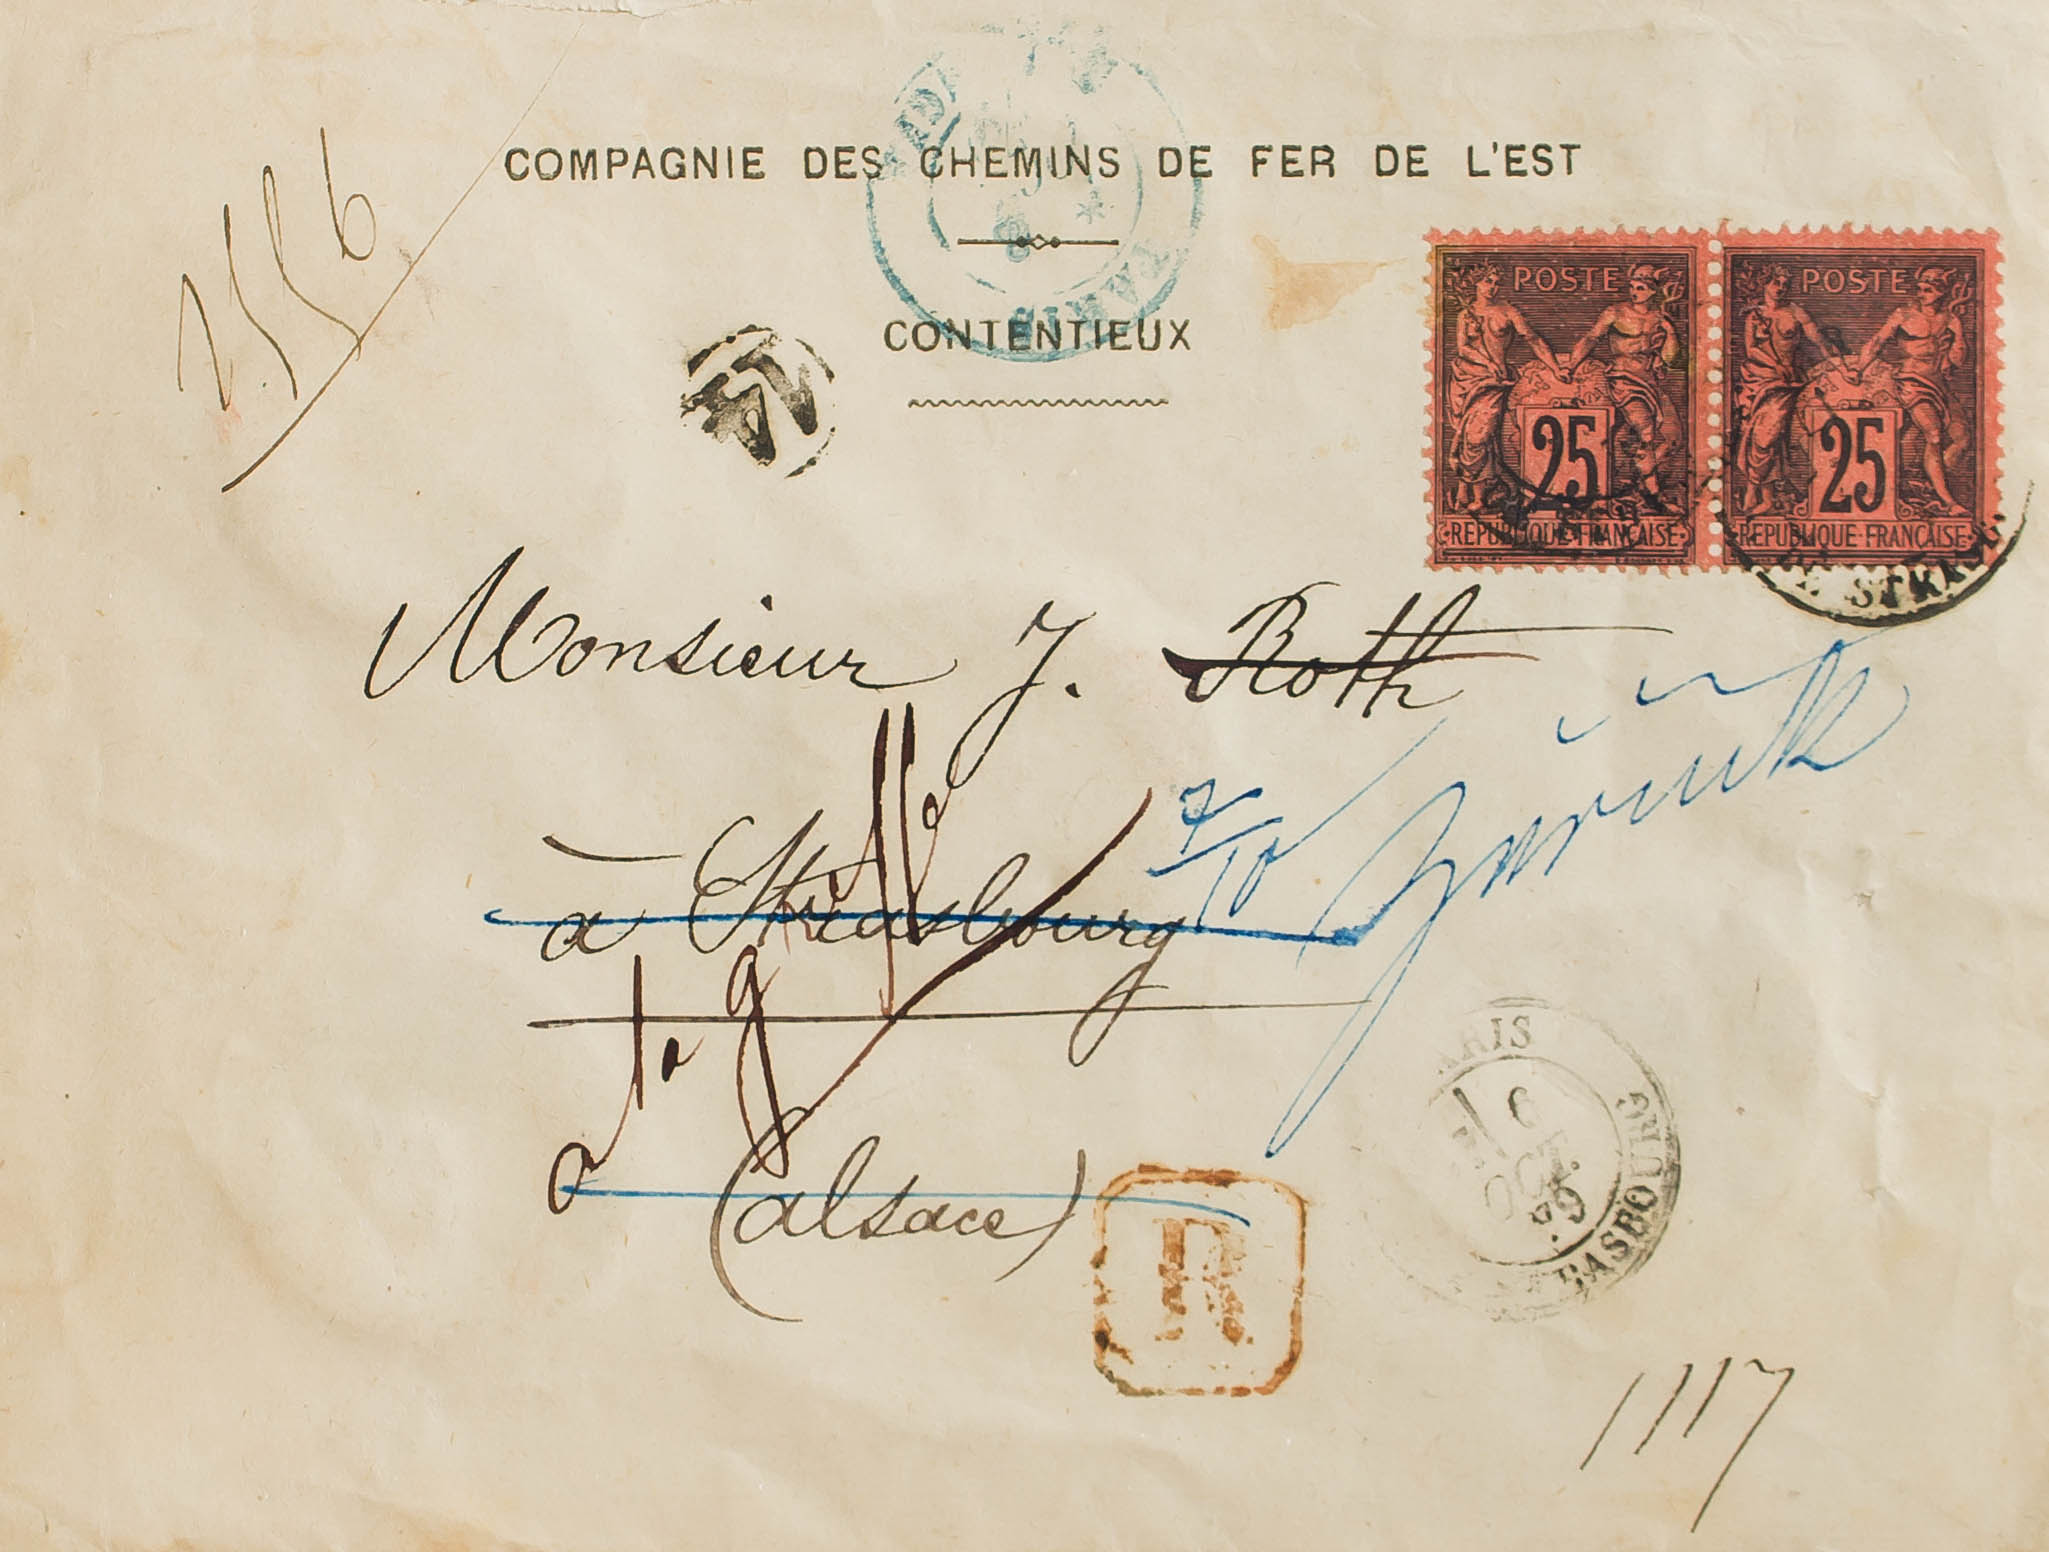 2556
COMPAGNIE DES CHEMINS DE FER DE L'EST
CONTENTIEUX
POSTE
25
REPUBLIQUE FRANÇAISE
POSTE
25
REPUBLIQUE FRANÇAISE
Monsieur J. Roth
à Strasbourg
7/10 Zurück
(Alsace)
R
PARIS
6
OCT.
79
STRASBOURG
1117